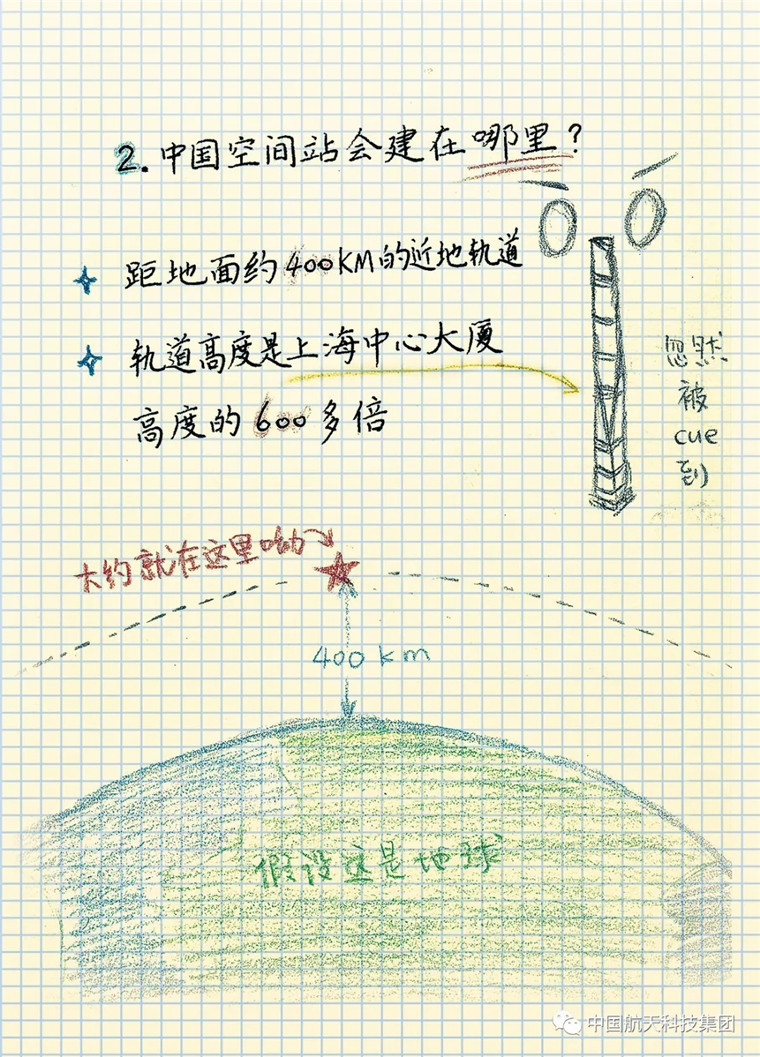 2. 中国空间站会建在哪里？
距地面约400KM的近地轨道
轨道高度是上海中心大厦
高度的600多倍
忽然
被
cue
到
大约就在这里呦
400km
假设这是地球
中国航天科技集团